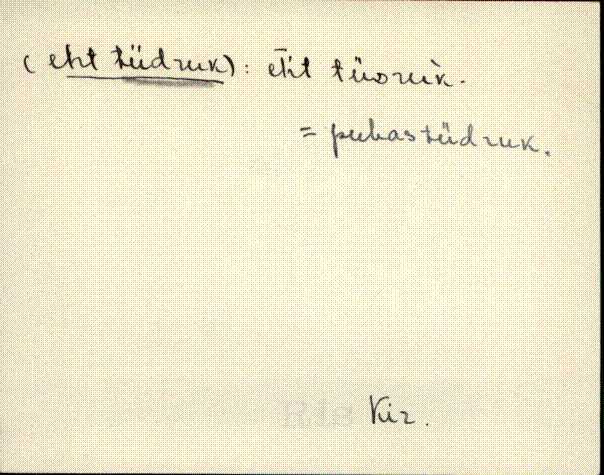 (eht tüdruk): eh̄t tüdruk̀.
= puhas tüdruk.
Kir.